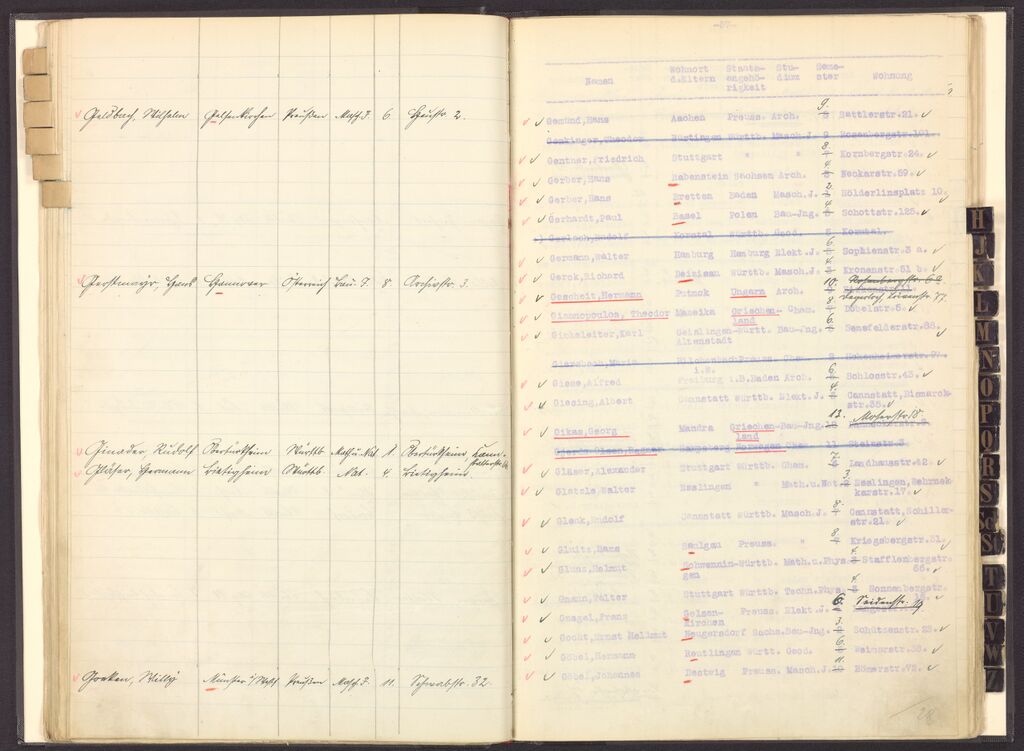 Geldbach, Wilhelm Gelsenkirchen Preußen Masch.J. 6 Haustr. 2.
Gerstmayr, Hans Hannover Österreich Bau-J. 8
Ginader, Rudolf Obertürkheim Württb. Math.u.Nat. 1 Obertürkheim,
Gläser, Hermann Bietigheim Württb. Nat. 4 Bietigheim.
Goeken, Willy Münster i/Westf. Preußen Masch.J. 11. Schwabstr. 32.
-27-
Namen Wohnort d.Eltern Staats-angehö-rigkeit Stu-dium Seme-ster Wohnung
Gemünd,Hans Aachen Preuss. Arch. 9. Sattlerstr.21.
Genkinger,Theodor Nürtingen Württb. Masch.J. 9 Rosenbergstr.101.
Gentner,Friedrich Stuttgart " " 8. Kornbergstr.24.
Gerber,Hans Rabenstein Sachsen Arch. 4. Neckarstr.59.
Gerber,Hans Bretten Baden Masch.J. 2. Hölderlinsplatz 10.
Gerhardt,Paul Basel Polen Bau-Jng. 4. Schottstr.125.
Gerlach,Rudolf Korntal Württb. Geod. 5 Korntal.
Germann,Walter Hamburg Hamburg Elekt.J. 6. Sophienstr.3 a.
Gerok,Richard Deizisau Württb. Masch.J. 4. Kronenstr.51 b.
Gescheit,Hermann Putnok Ungarn Arch. 10. Rosenbergstr. 6a
Degerloch, Löwenstr. 77.
Giannopoulos, Theodor Maseika Griechen-land Chem. 8 Döbelstr.5.
Gickeleiter,Karl Geislingen-Altenstadt Württ. Bau-Jng. 6. Senefelderstr.88.
Giersbach,Maria Hilchenbach i.W. Preuss. Chem. 2 Hohenheimerstr.97.
Giese,Alfred Freiburg i.B.Baden Arch. 6. Schlosstr.43.
Giesing,Albert Cannstatt Württb. Elekt.J. 4. Cannstatt,Bismarck-
str.35.
Gikas,Georg Mandra Griechen-land Bau-Jng. 13. Moserstr 18.
Norwegen Chem. 11 Steinstr.3
Gläser,Alexander Stuttgart Württb. Chem. 7. Landhausstr.42.
Glatzle,Walter Esslingen " Math.u.Nat. 3. Esslingen,Wehrnek-
karstr.17.
Glenk,Rudolf Cannstatt Württb. Masch.J. 8. Cannstatt,Schiller-
str.21.
Gluitz,Hans Saulgau Preuss. " 8. Kriegsbergstr.31.
Glunz,Helmut Schwennin-gen Württb. Math.u.Phys. 4. Stafflenbergstr.
66.
Gnann,Walter Stuttgart Württb. Techn.Phys. 4. Sonnenbergstr.
Gnegel,Franz Gelsen-kirchen Preuss. Elekt.J. 6. Seidenstr. 19
Gocht,Ernst Hellmut Neugersdorf Sachs.Bau-Jng. 3. Schützenstr.23.
Göbel,Hermann Reutlingen Württ. Geod. 6. Weimarstr.38.
Göbel,Johannes Bestwig Preuss. Masch.J. 11. Römerstr.72.
28
H
J
K
L
M
N
O
P
Q
R
S
Sch
S
T
U
V
W
Z